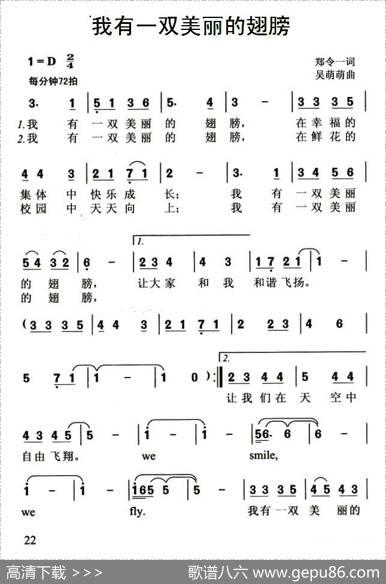 我有一双美丽的翅膀
1=D 2/4
郑令一词
每分钟72拍
吴萌萌曲
3. 1 | 5 1 3 6 | 5. 4 | 3 - | 3 3 3 5 |
1.我 有 一双美丽 的 翅 膀, 在幸福的
2.我 有 一双美丽 的 翅 膀, 在鲜花的
4 4 3 | 2 1 7 1 | 2 - | 3. 1 | 3 4 5 6 |
集体 中 快乐成 长; 我 有 一双美丽
校园 中 天天向 上; 我 有 一双美丽
1.
5 4 3 2 | 6 - | 2 3 4 | 4 3 4 | 1 7 2 1 | 1 - |
的 翅 膀, 让大家 和我 和谐飞扬。
的 翅 膀,
(3 3 3 5 | 4 4 3 | 2 2 2 4 | 3 3 1 | 2 4 6 |
2.
5 7 1 | 1 - | 1 - | 1 0) :‖ 2 3 4 4 | 5 4 4 |
让我们在 天 空中
4 3 4 5 | 5 - | 1 - | 1 - | 56. 6 | 6 - |
自由飞翔。 we smile,
1 - | 1 - | 165 5 | 5 - | 3. 1 | 5 1 3 6 |
we fly. 我有一双 美丽的
22
高清下载 >>>
歌谱八六 www.gepu86.com